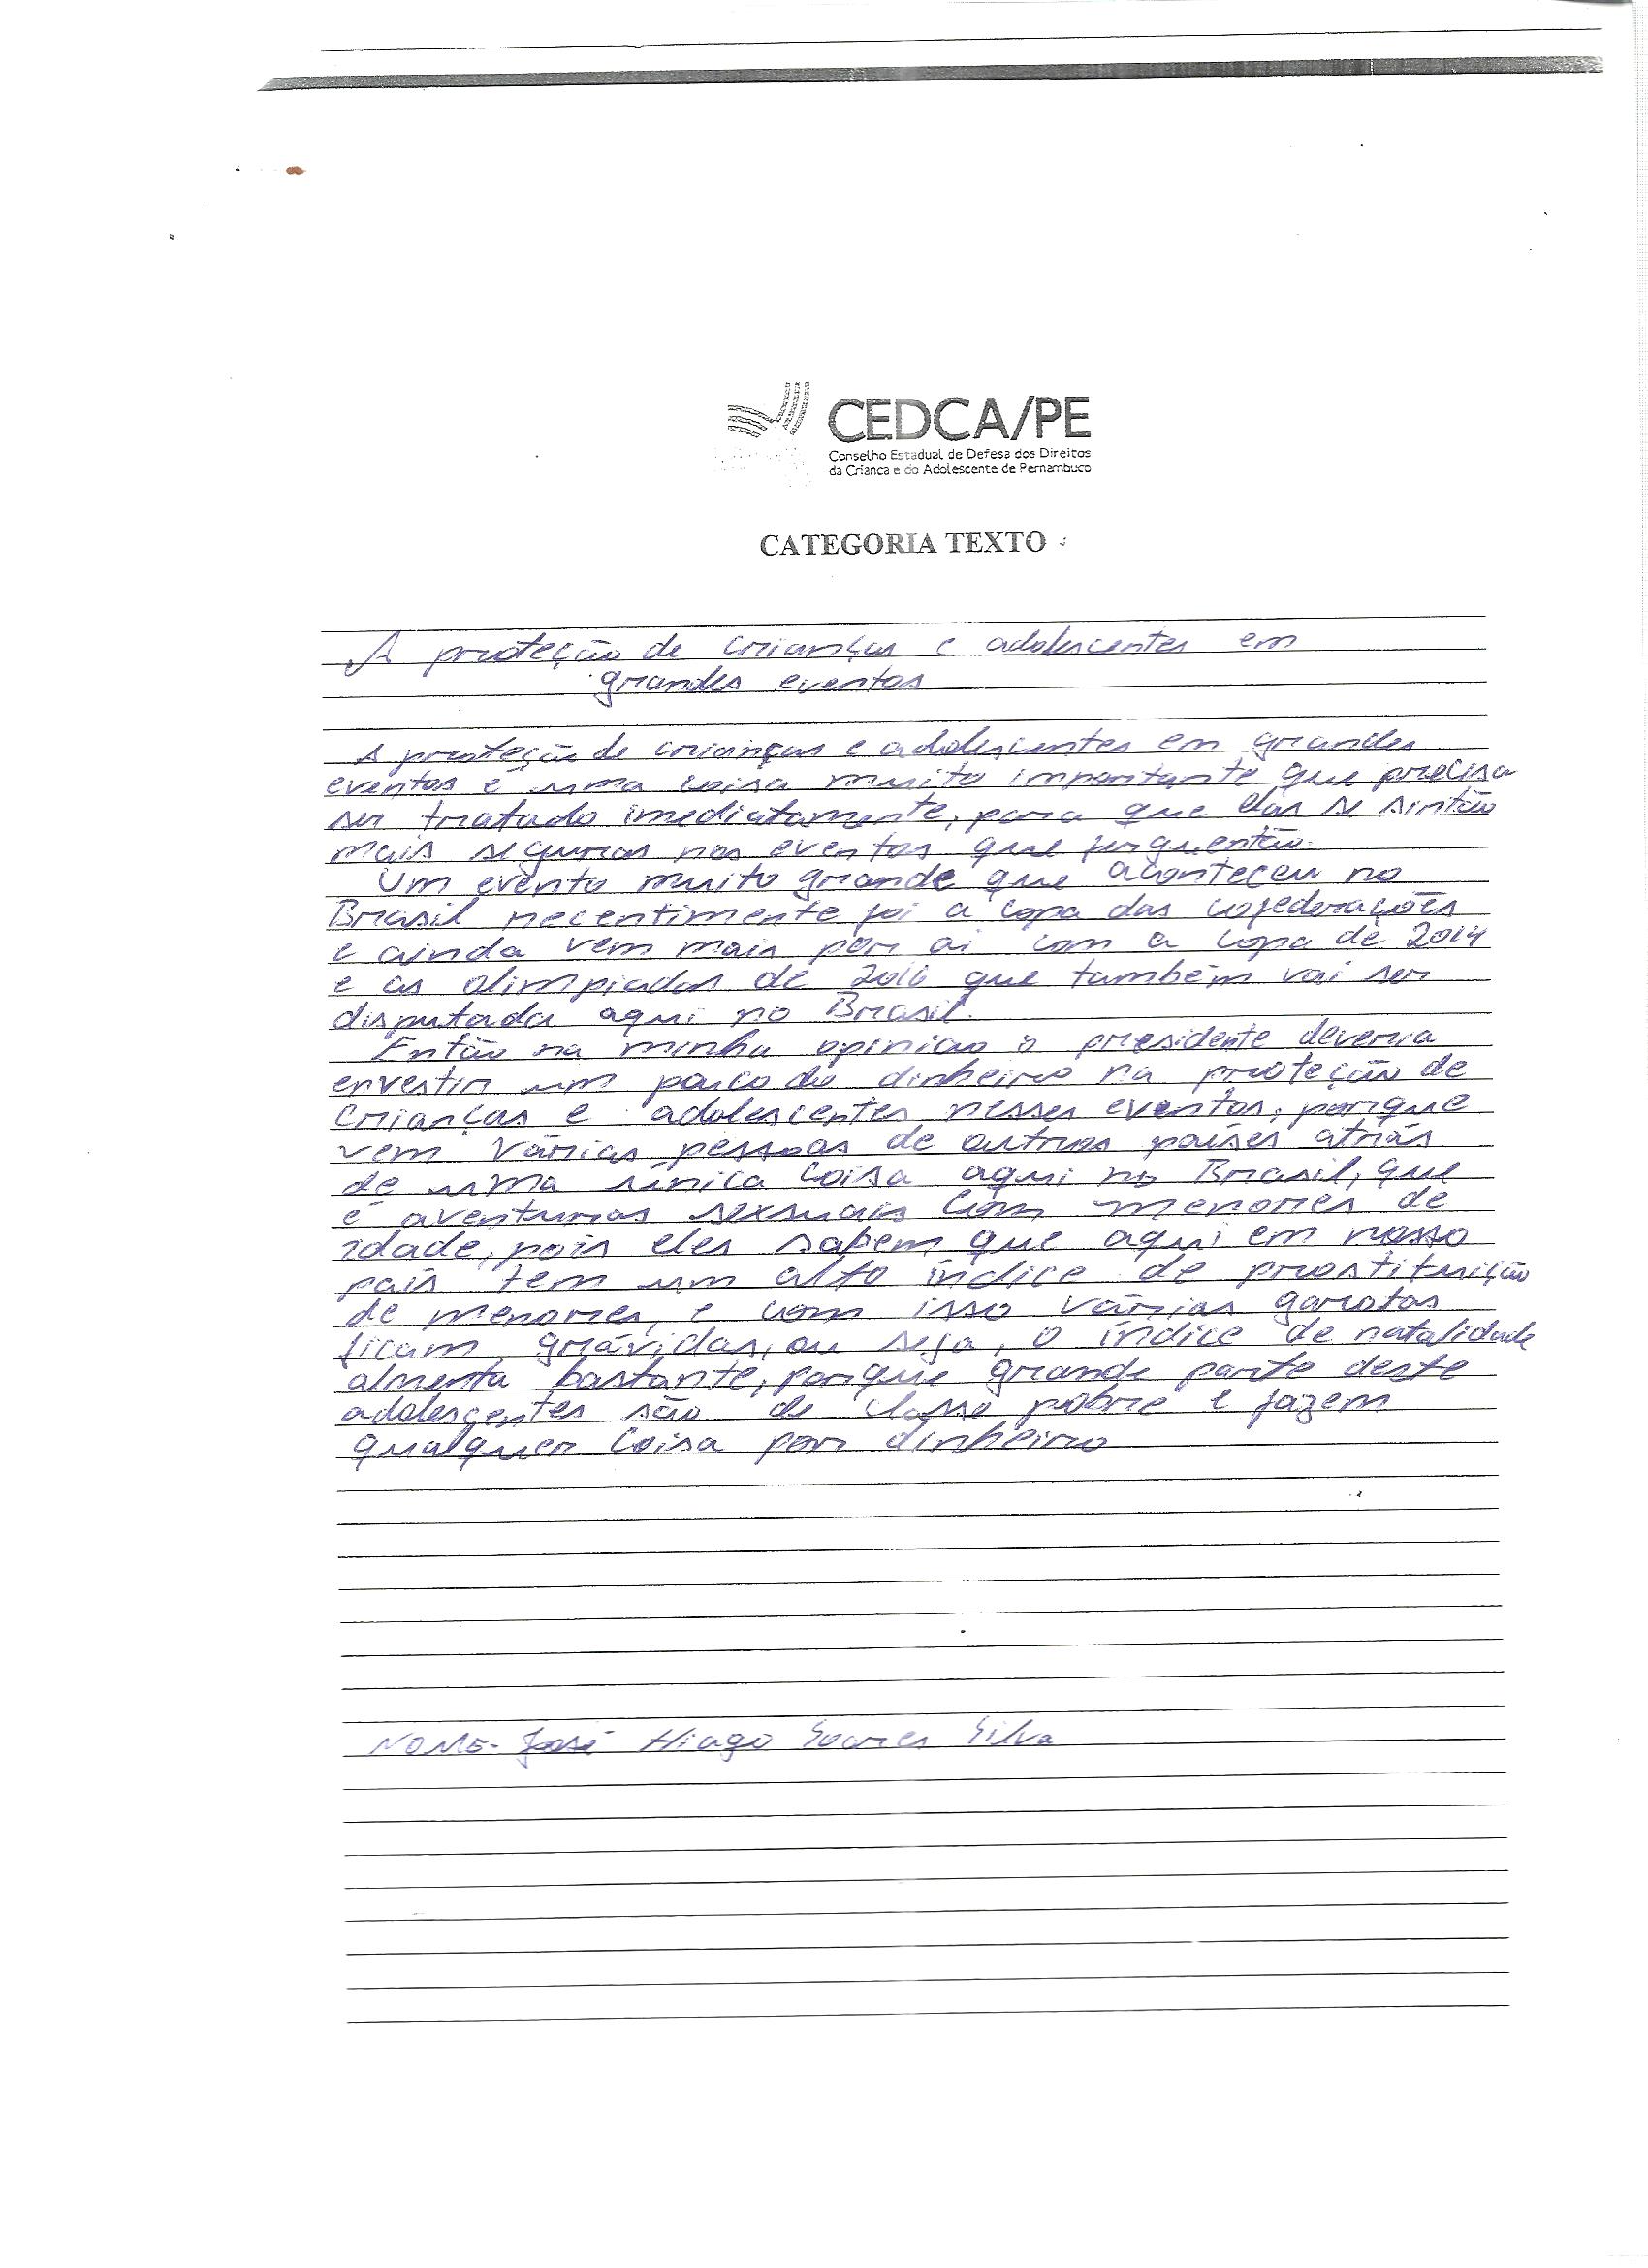 CEDCA/PE
Conselho Estadual de Defesa dos Direitos
da Criança e do Adolescente de Pernambuco
CATEGORIA TEXTO
A proteção de crianças e adolescentes em
grandes eventos
A proteção de crianças e adolescentes em grandes
eventos é uma coisa muito importante que precisa
ser tratado imediatamente, para que elas se sintão
mais seguras nos eventos que
Um evento muito grande que aconteçeu no
Brasil recentimente foi a copa das cofederações
e ainda vem mais por ai com a copa de 2014
e as olimpiadas de 2016 que também vai ser
disputada aqui no Brasil.
Então na minha opinião o presidente deveria
envestir um pouco do dinheiro na proteção de
crianças e adolescentes nesses eventos, porque
vem várias pessoas de outros países atrás
de uma única coisa aqui no Brasil, que
é aventuras sexsuais com menores de
idade, pois eles sabem que aqui em nosso
país tem um alto índice de prostituição
de menores, e com isso várias garotas
ficam grávidas, ou seja, o índice de natalidade
almenta bastante, porque grande parte deste
adolesçentes são de classe pobre e fazem
qualquer coisa por dinheiro
NOME- José Hiago Soares Silva